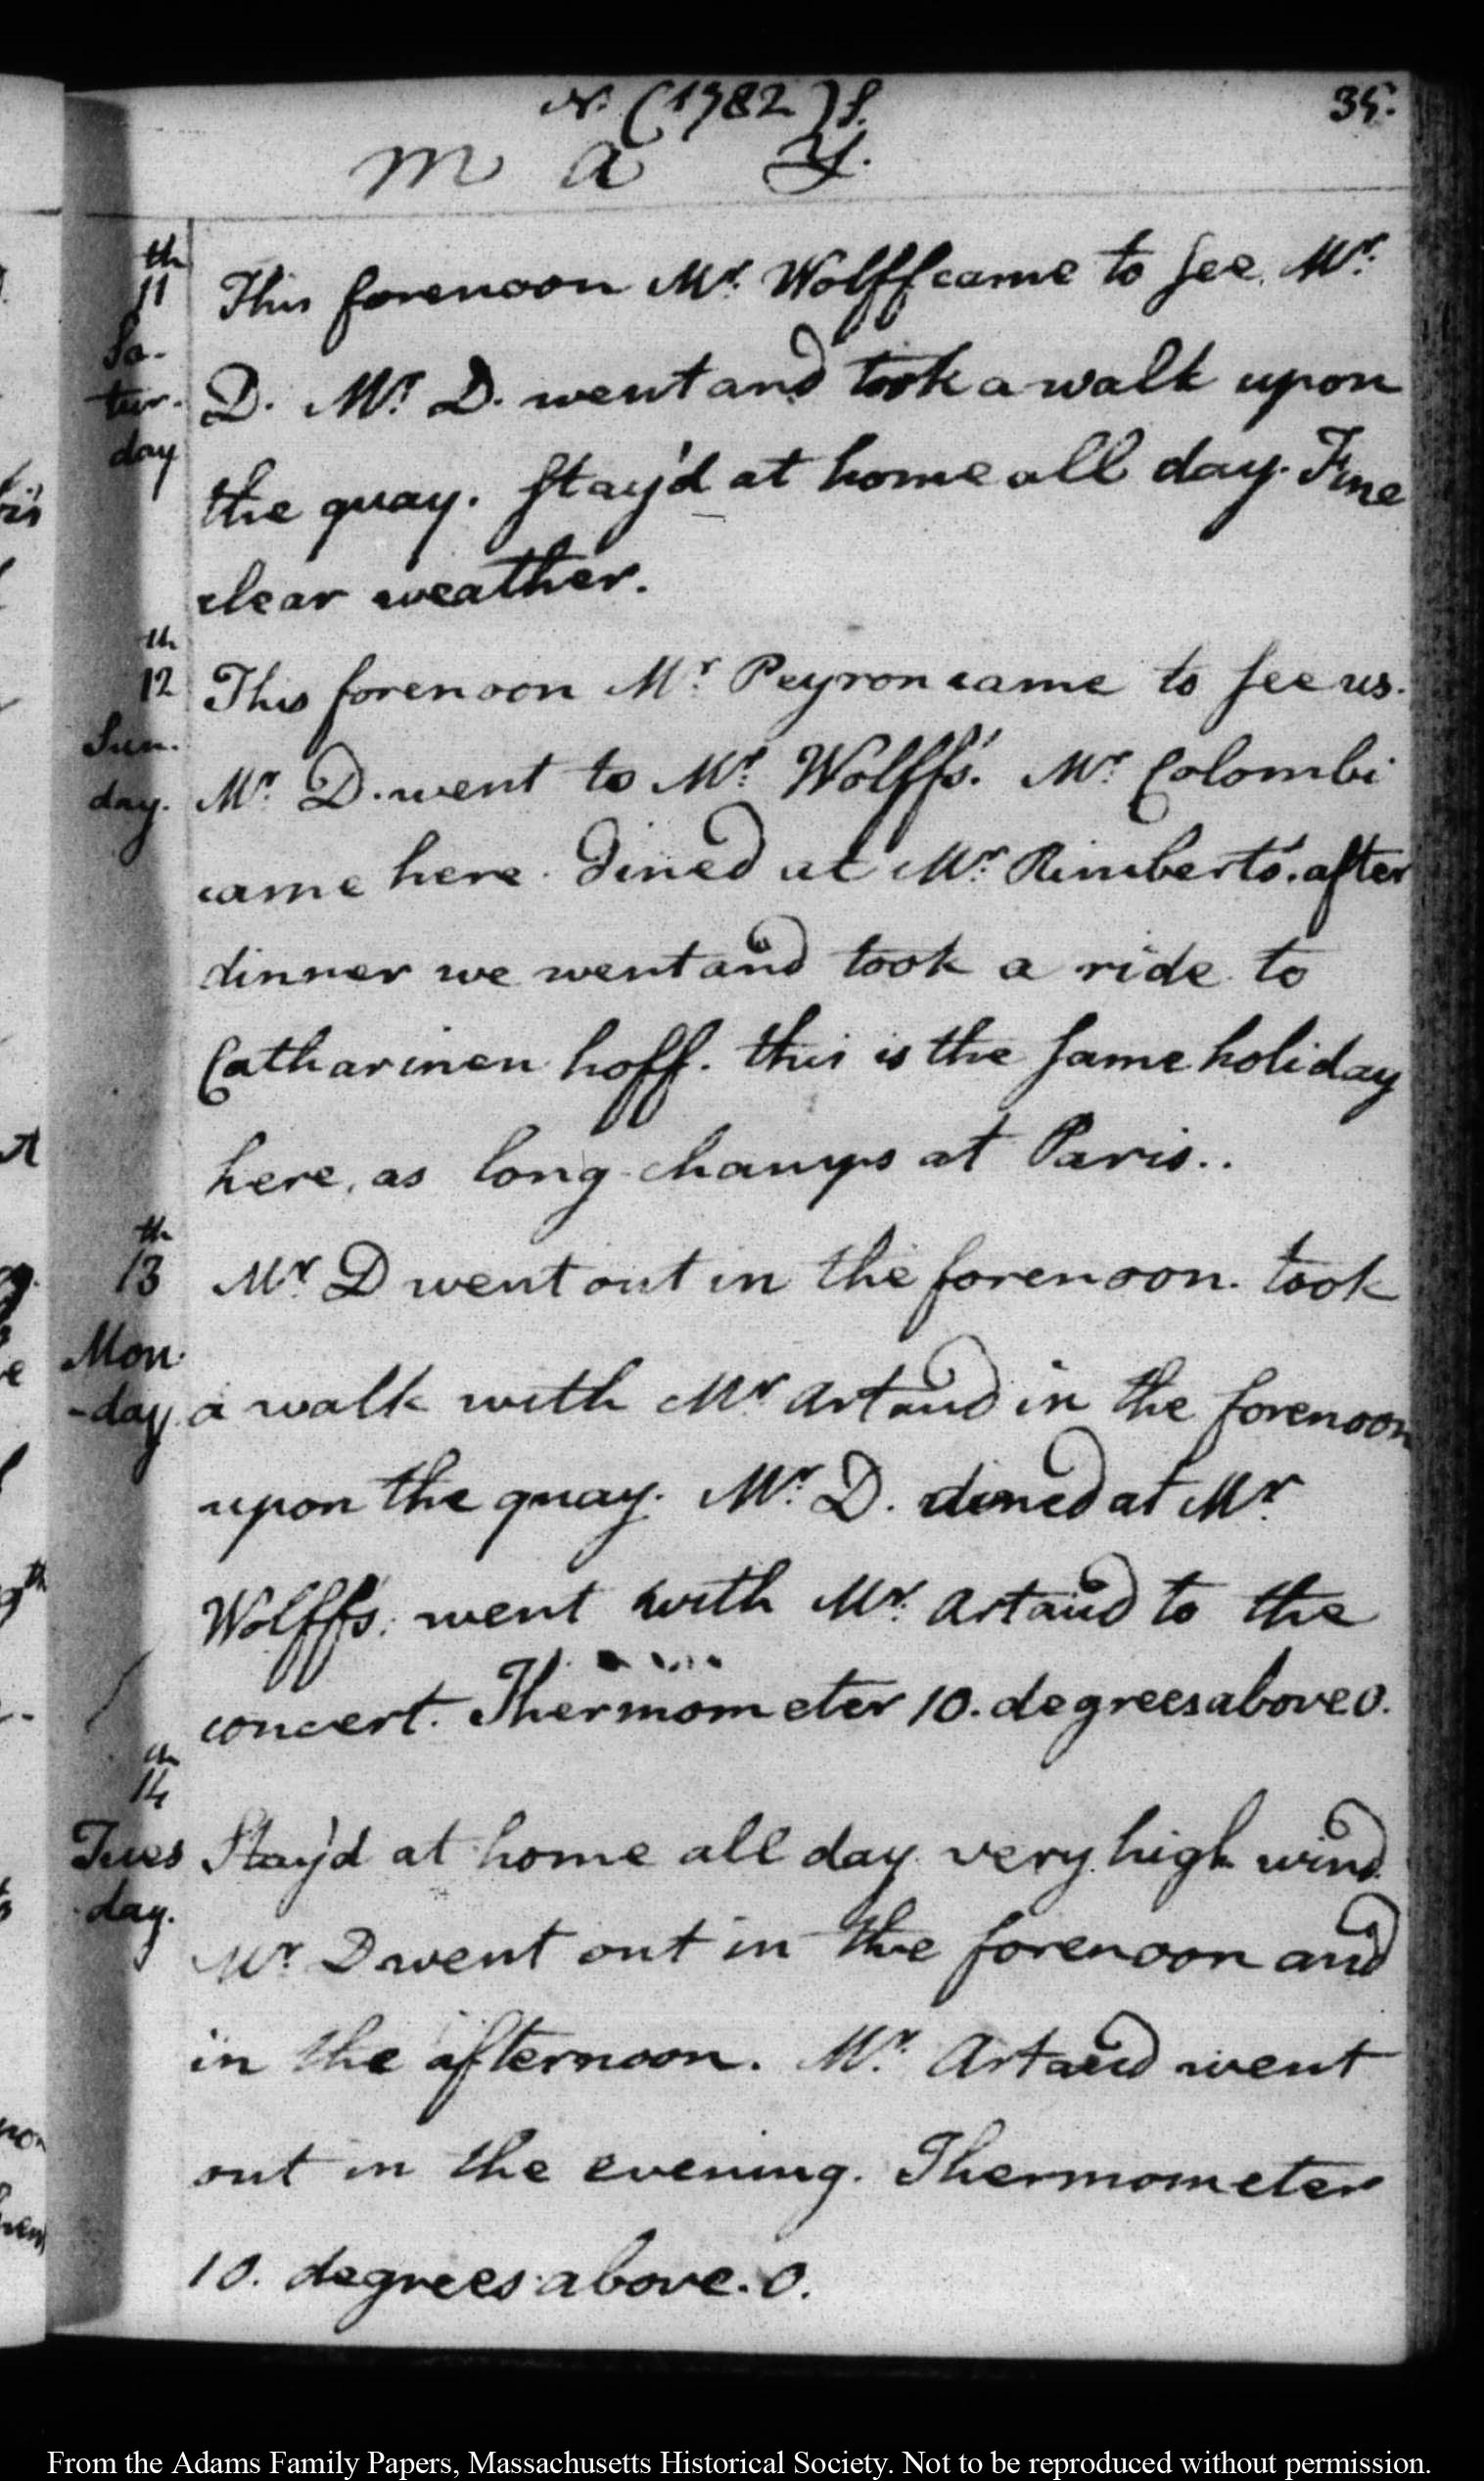 N. (1782) S.
35.
M a y.
th
11
Sa-
tur-
day
This forenoon Mr. Wolff came to see Mr.
D. Mr. D. went and took a walk upon
the quay. Stay'd at home all day. Fine
clear weather.
th
12
Sun-
day.
This forenoon Mr. Peyron came to see us.
Mr. D. went to Mr. Wolff's. Mr. Colombi
came here. Dined at Mr. Rimbert's. after
dinner we went and took a ride to
Catharinen hoff. this is the same holiday
here, as long-champs at Paris..
th
13
Mon-
-day
Mr. D went out in the forenoon. took
a walk with Mr. Artaud in the forenoon
upon the quay. Mr. D. dined at Mr.
Wolff's. went with Mr. Artaud to the
concert. Thermometer 10. degrees above 0.
th
14
Tues
day.
Stay'd at home all day very high wind
Mr. D went out in the forenoon and
in the afternoon. Mr. Artaud went
out in the evening. Thermometer
10. degrees above. 0.
From the Adams Family Papers, Massachusetts Historical Society. Not to be reproduced without permission.